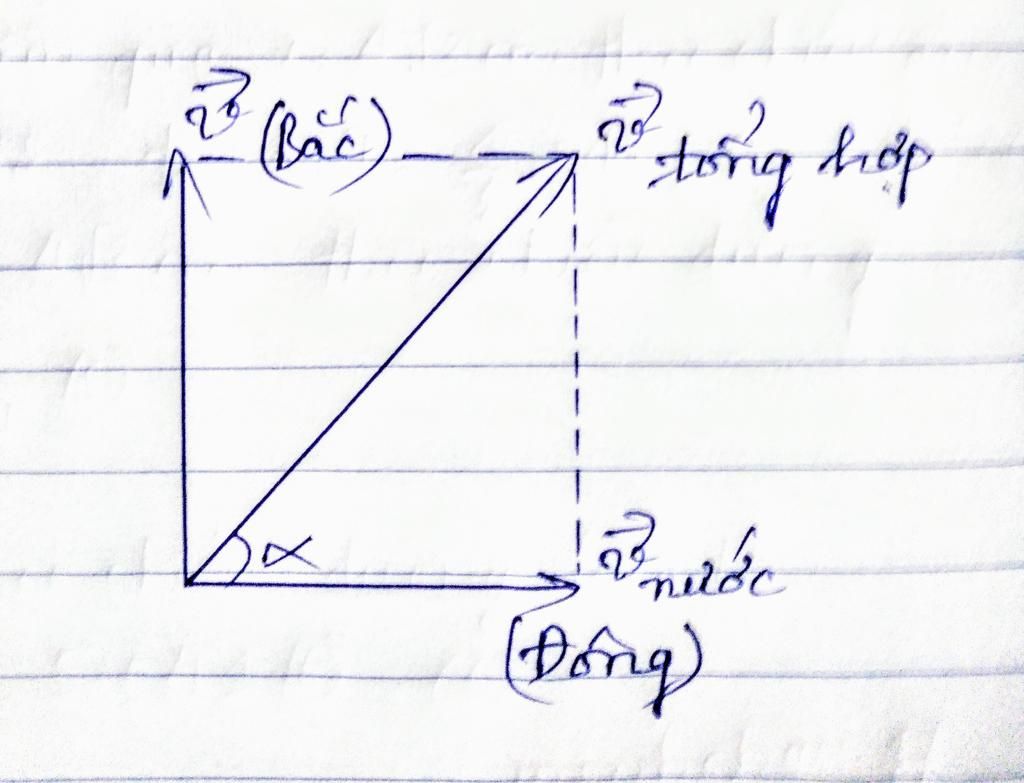 v⃗ (Bắc)
v⃗ tổng hợp
α
v⃗ nước
(Đông)